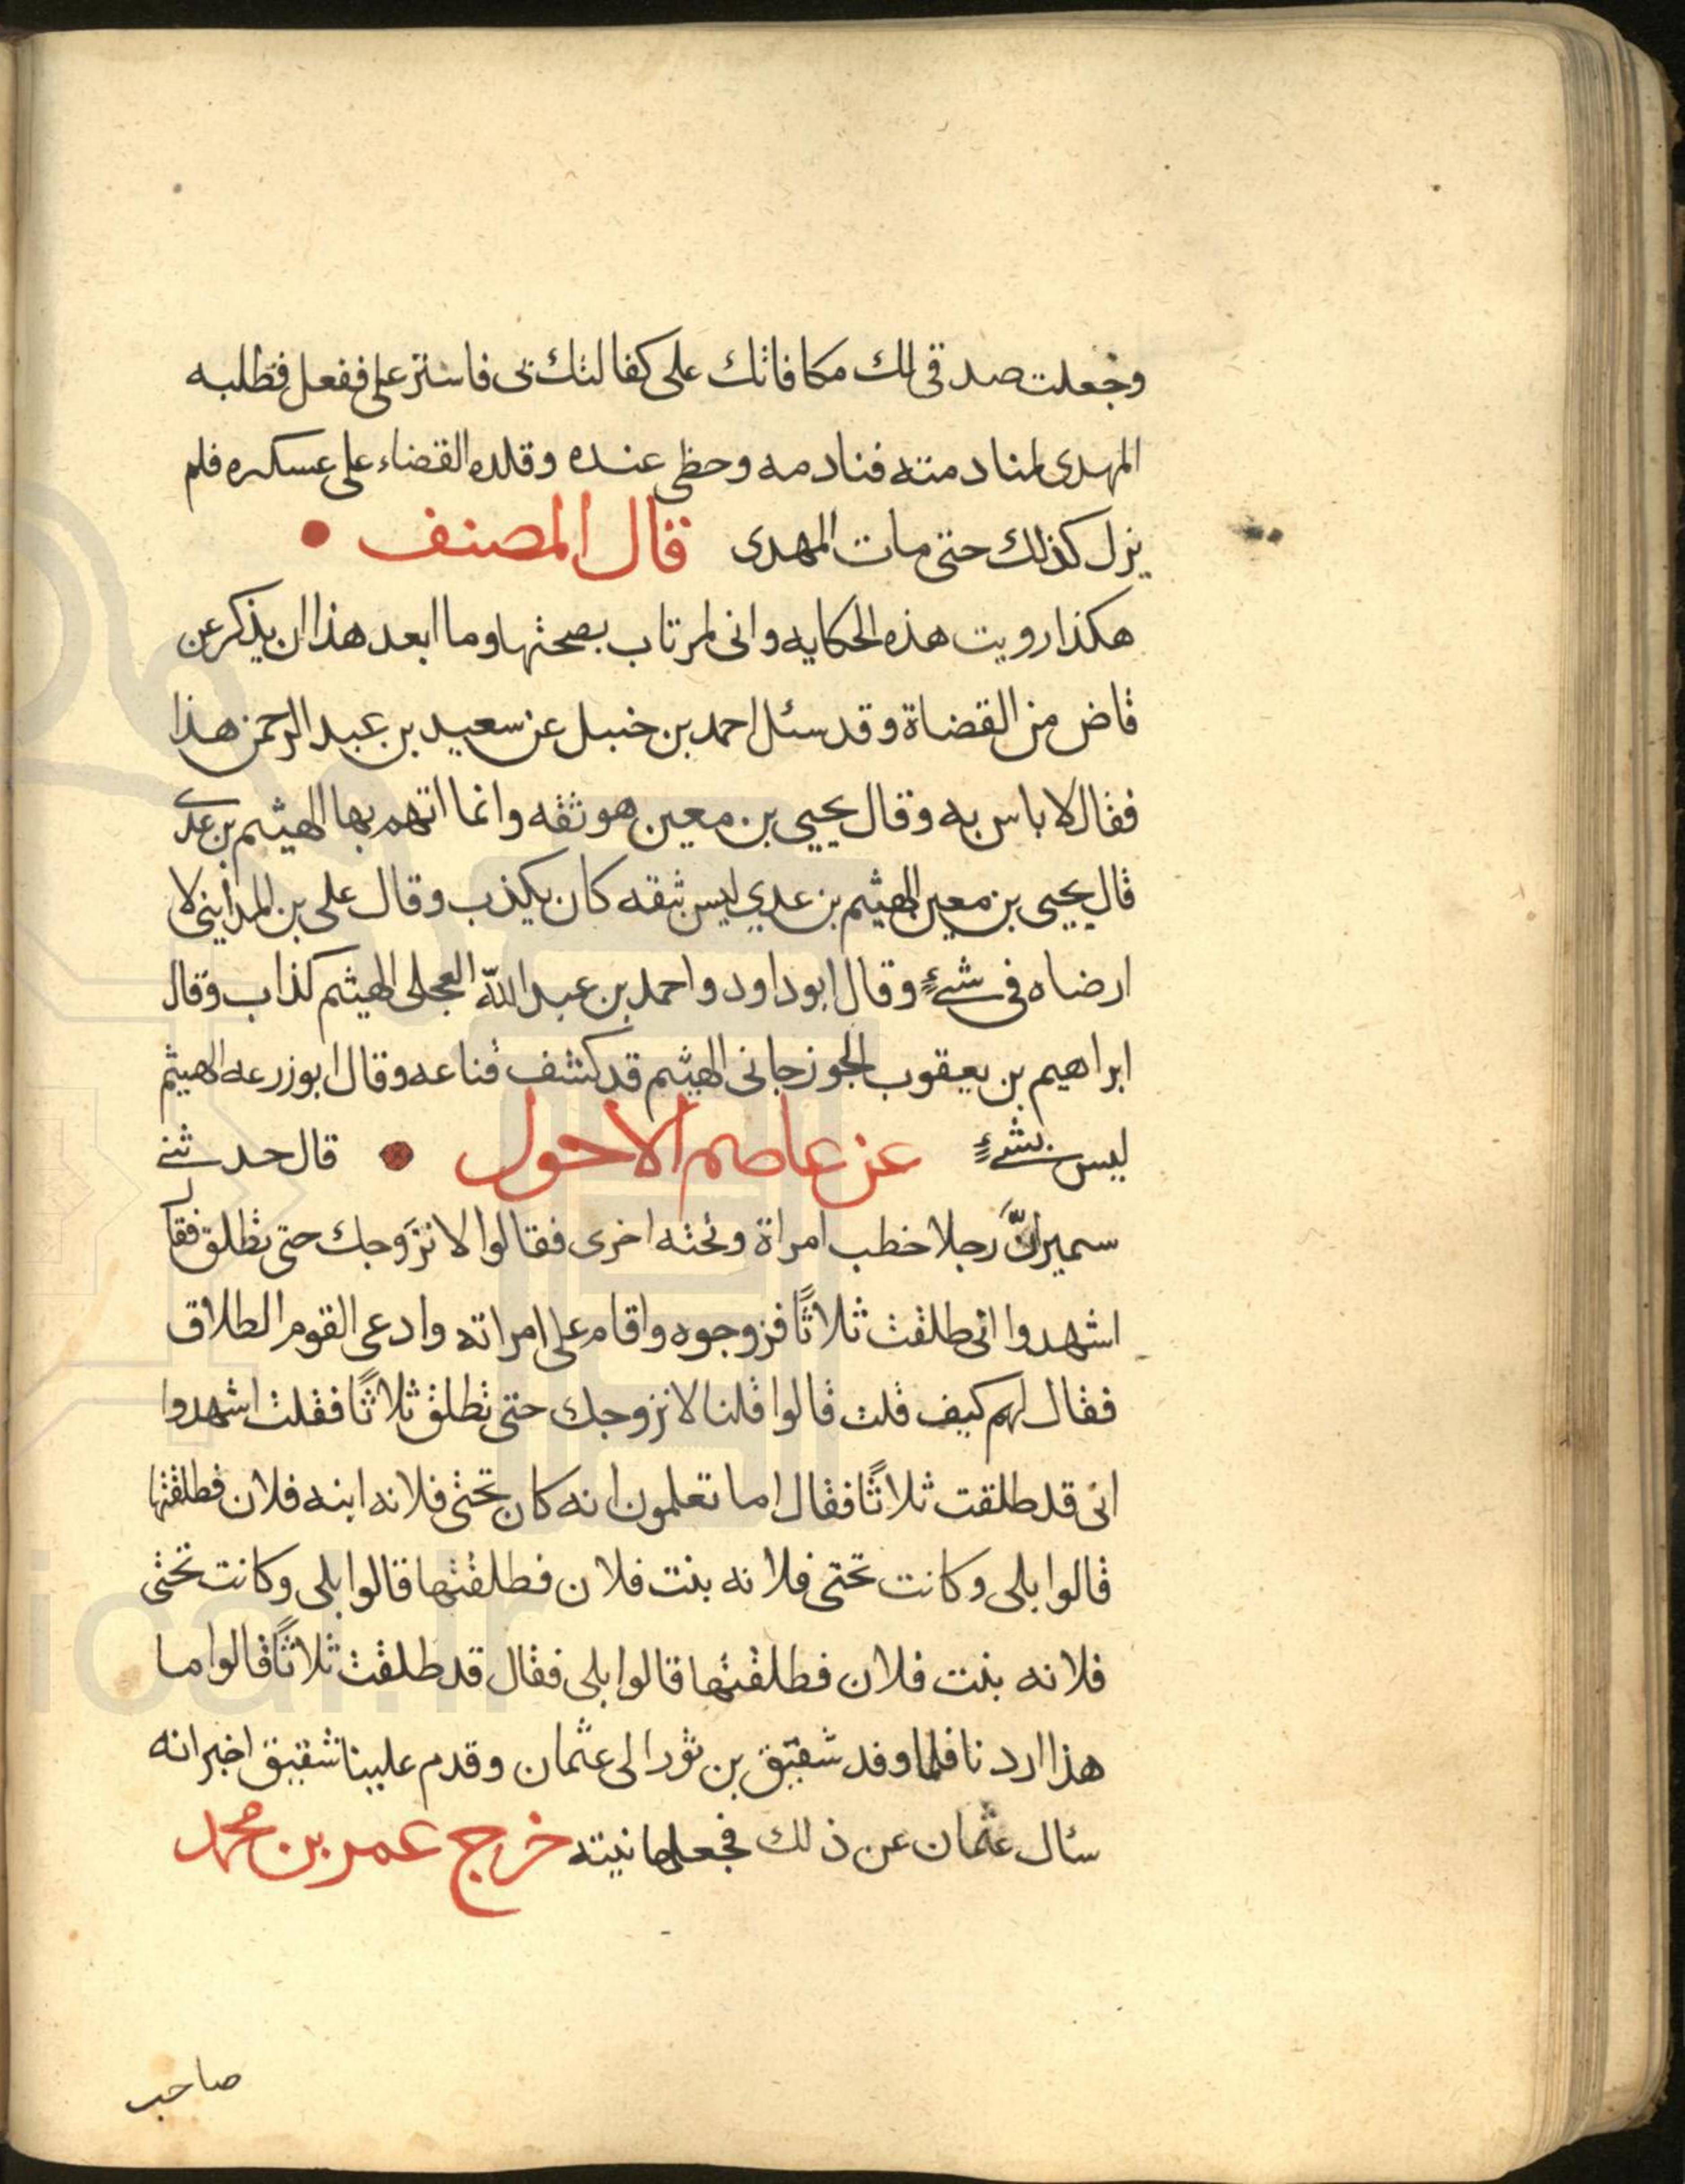 وجعلت صدقى لك مكافاتك على كفالتك بى فاستر على ففعل فطلبه
المهدى لمنادمته فنادمه وحظى عنده وقلده القضاء على عسكره فلم
يزل كذلك حتى مات المهدى قال المصنف
هكذا رويت هذه الحكايه وانى لمرتاب بصحتها وما ابعد هذا ان يذكر عن
قاض من القضاة وقد سئل احمد بن حنبل عن سعيد بن عبد الرحمن هذا
فقال لا باس به وقال يحيى بن معين هو ثقه وانما اتهم بها الهيثم بن عدي
قال يحيى بن معين الهيثم بن عدي ليس بثقه كان يكذب وقال على بن المدايني لا
ارضاه فى شئٍ وقال ابو داود واحمد بن عبد الله العجلى الهيثم كذاب وقال
ابراهيم بن يعقوب الجوزجانى الهيثم قد كشف قناعه وقال ابو زرعه الهيثم
ليس بشئٍ عن عاصم الاحول قال حدثنے
سمير انَّ رجلا خطب امراة وتحته اخرى فقالوا لا نزوجك حتى تطلق فقال
اشهدوا انى طلقت ثلاثًا فزوجوه واقام على امراته وادعى القوم الطلاق
فقال لهم كيف قلت قالوا قلنا لا نزوجك حتى تطلق ثلاثًا فقلت اشهدوا
انى قد طلقت ثلاثًا فقال اما تعلمون انه كان تحتى فلانه ابنه فلان فطلقتها
قالوا بلى وكانت تحتى فلانه بنت فلان فطلقتها قالوا بلى وكانت تحتى
فلانه بنت فلان فطلقتها قالوا بلى فقال قد طلقت ثلاثًا قالوا ما
هذا اردنا فلما وفد شقيق بن ثور الى عثمان وقدم علينا شقيق اخبر انه
سال عثمان عن ذلك فجعلها نيته خرج عمر بن محمد
صاحب